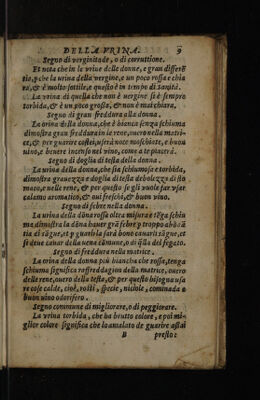 DELLA VRINA. 9
Segno di verginitade, o di corruttione.
Et nota che in le vrine delle donne, e gran differẽ
tia, p che la vrina della vergine, e un poco rossa e chia
ra, & è molto sottile, e questo è in tempo di sanità.
La vrina di quella che non è vergine si è sempre
torbida, & è un poco grossa, & non è mai chiara.
Segno di gran freddura alla donna.
La orina della donna, che è bianca senza schiuma
dimostra gran freddura in la rene, ouero nella matri-
ce, & per guarire costei, userà noce moschiate, e buon
vino, e beuere incenso nel vino, come a te piacerà.
Segno di doglia di testa della donna.
La vrina della donna, che sia schiumosa e torbida,
dimostra grauezza e doglia di testa debolezza di sto
maco, e nelle rene, & per questo se gli vuole far vsar
calamo aromatico, & oui freschi, & buon vino.
Segno di febre nella donna.
La vrina della dõna rossa oltra misura e tẽga schiu
ma dimostra la dõna hauer grã febre p troppo abõdã
tia di sãgue, et p guarirla sarà bono cauarli sãgue, et
si deue cauar della uena cõmune, o di q̃lla del fegato.
Segno di freddura nella matrice.
La orina della donna piu bianca che rossa, tenga
schiuma significa raffreddagion della matrice, ouero
delle rene, ouero della testa, & per questo bisogna vsa
re cose calde, cioè, rosti, specie, nichole, cominada e
buon vino odorifero.
Segno commune di migliorare, o di peggiorare.
La vrina torbida, che ha brutto colore, e poi mi-
glior colore significa che lo amalato de guarire assai
B presto: